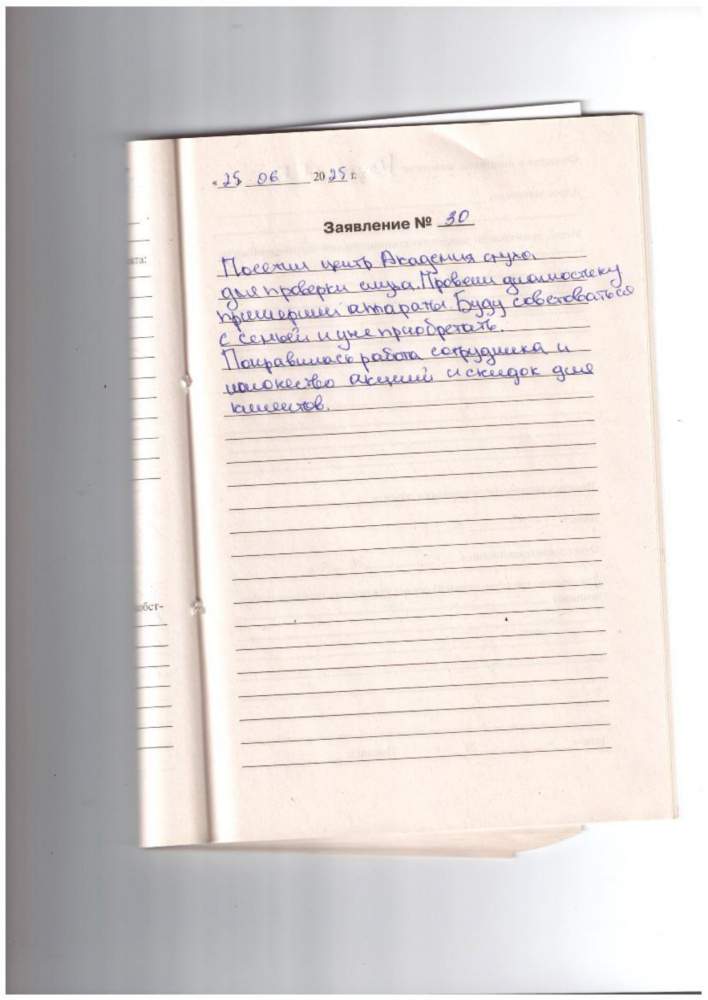 « 25 » 06 2025 г.
Заявление № 30
Посетил центр Академия слуха
для проверки слуха. Провели диагностику
примерили аппараты. Буду советоваться
с семьей и уже приобретать.
Понравилась работа сотрудника и
множество акций и скидок для
клиентов.
обст-